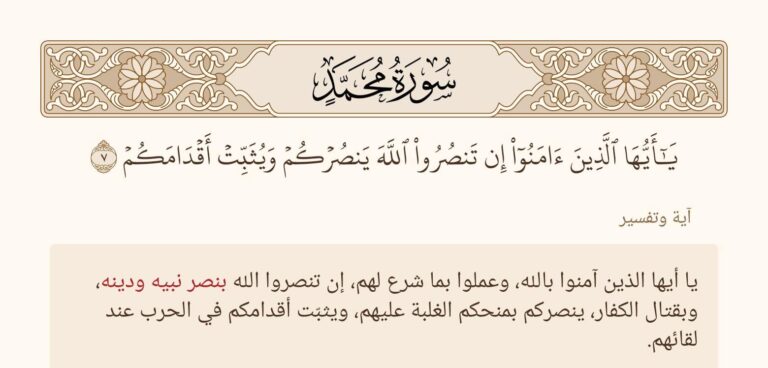 سُورَةُ مُحَمَّدٍ
يَـٰٓأَيُّهَا ٱلَّذِينَ ءَامَنُوٓا۟ إِن تَنصُرُوا۟ ٱللَّهَ يَنصُرْكُمْ وَيُثَبِّتْ أَقْدَامَكُمْ ٧
آية وتفسير
يا أيها الذين آمنوا بالله، وعملوا بما شرع لهم، إن تنصروا الله بنصر نبيه ودينه،
وبقتال الكفار، ينصركم بمنحكم الغلبة عليهم، ويثبّت أقدامكم في الحرب عند
لقائهم.